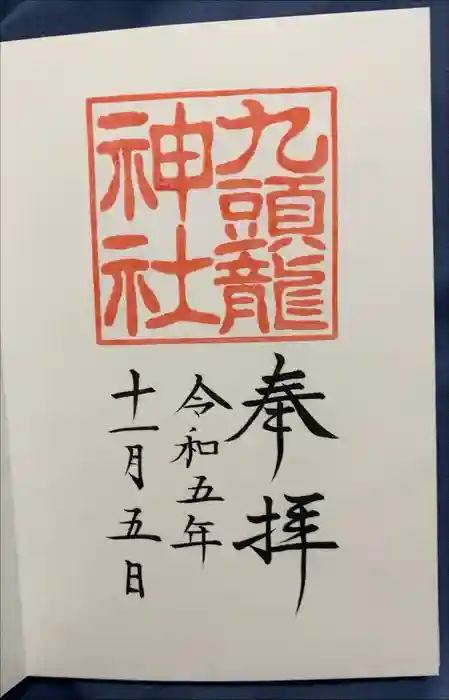 九頭龍
神社
奉拝
令和五年
十一月五日